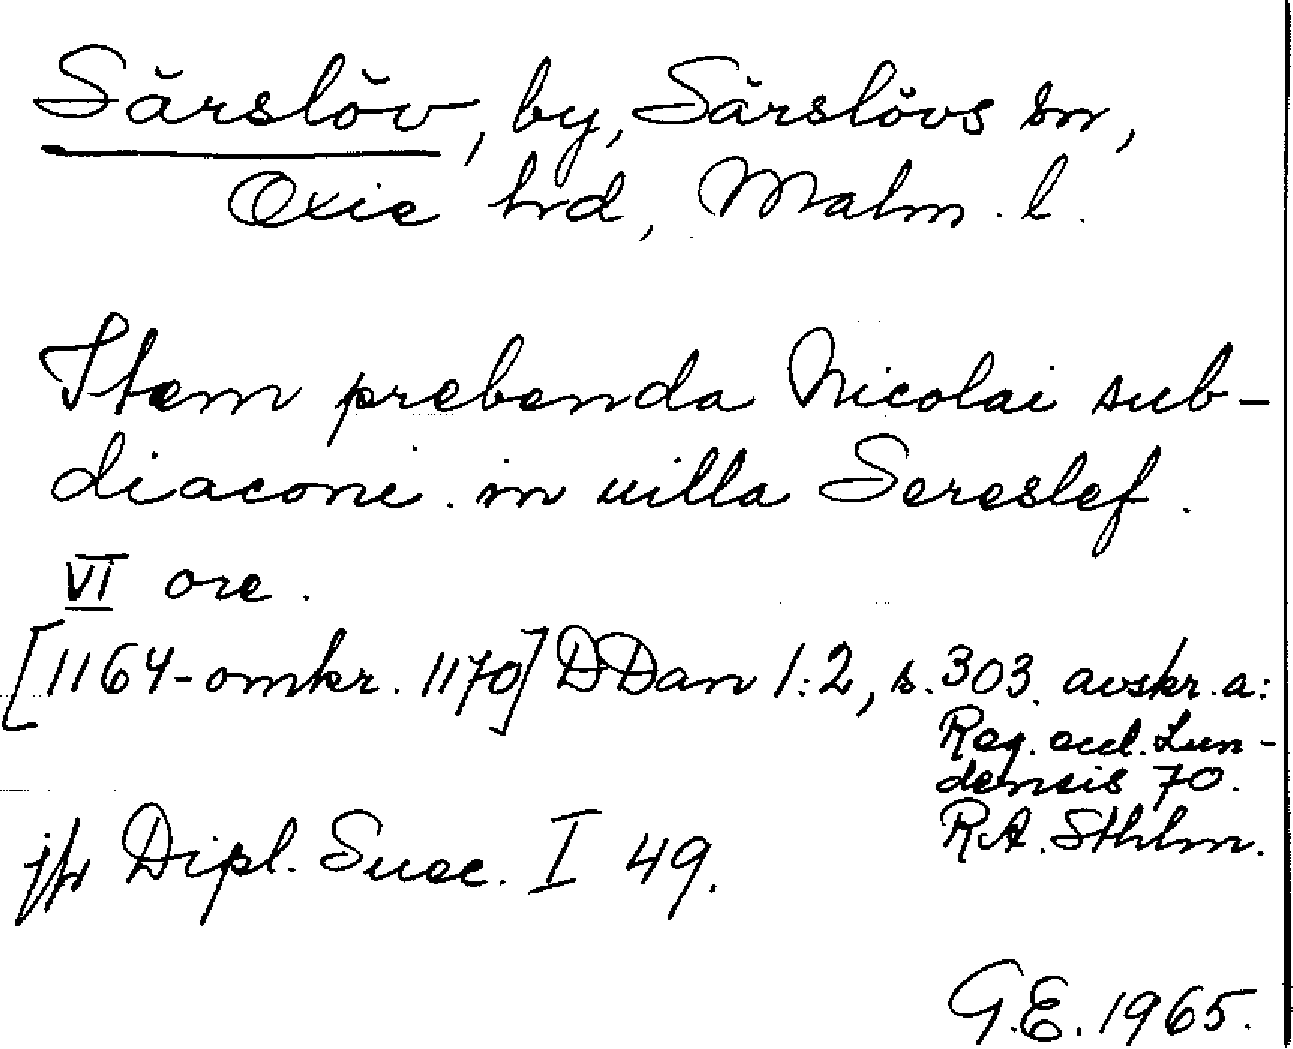 Särslöv, by, Särslövs sn,
Oxie hrd, Malm. l.
Item prebenda Nicolai sub-
diaconi. in uilla Sereslef.
VI ore.
[1164-omkr. 1170] DDan 1:2, s. 303. avskr. a:
Reg. eccl. Lun-
densis 70.
RA. Sthlm.
jfr Dipl. Suec. I 49.
G.E. 1965.